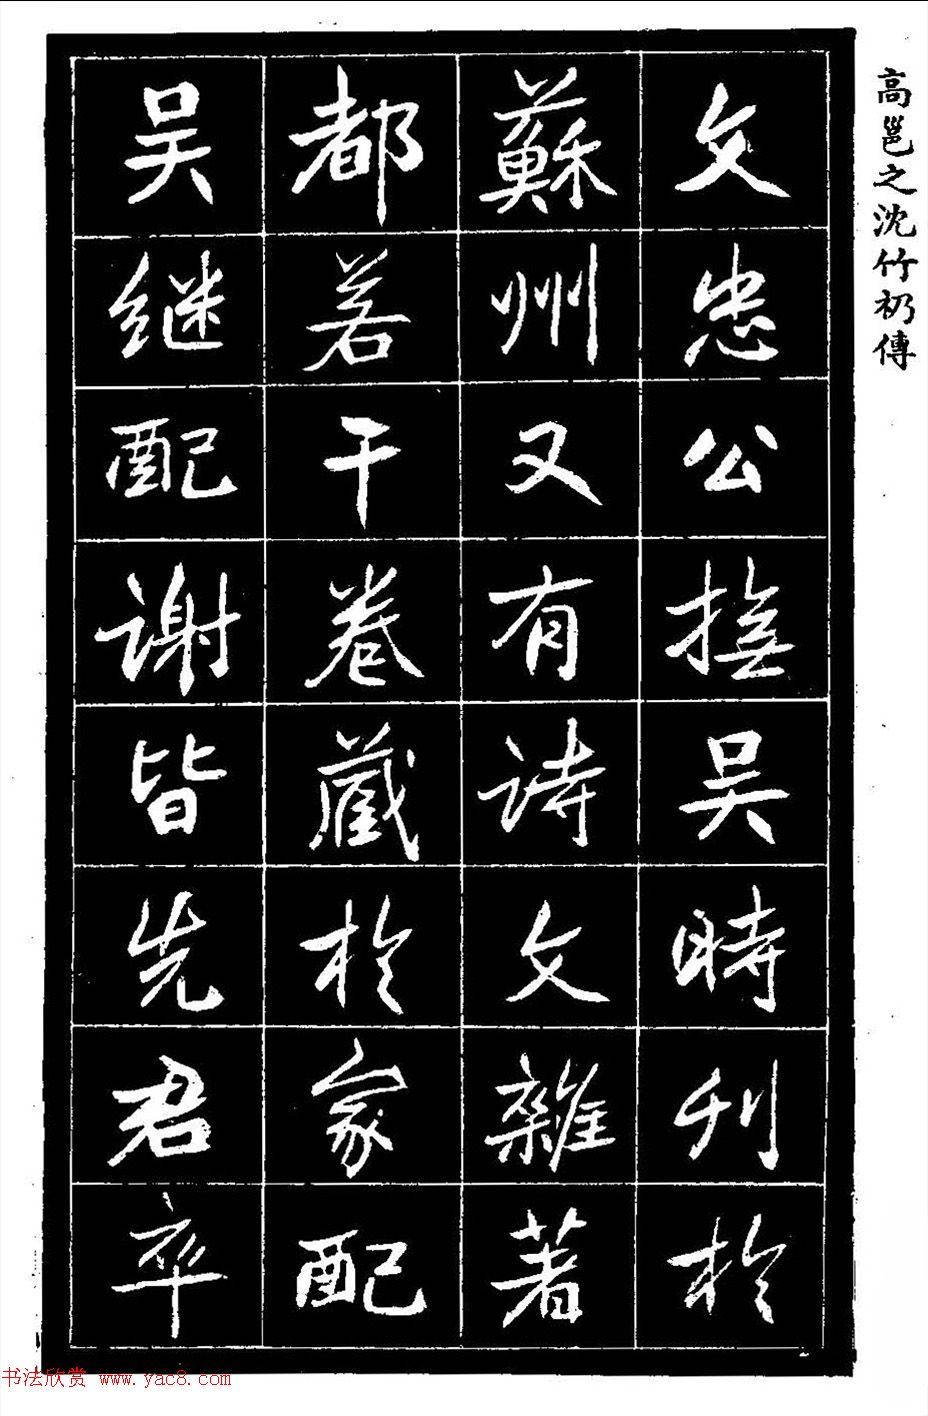 高邕之沈竹礽傳
文忠公撫吴時刋於
蘇州又有詩文雜著
都若干卷藏於家配
吴继配谢皆先君卒
书法欣赏 www.yac8.com